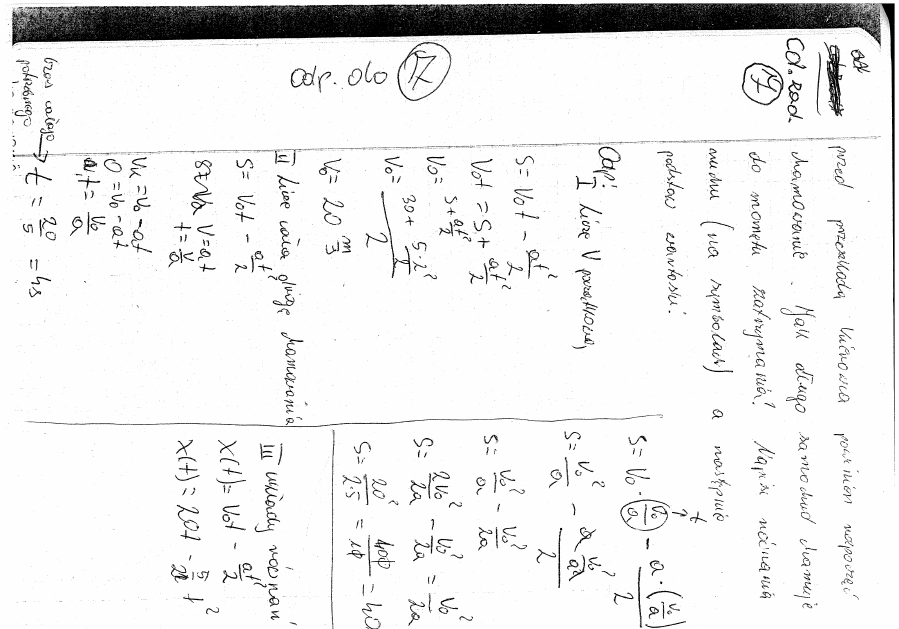 cd. zad. 7
przed przeszkodą kierowca powinien rozpocząć
hamowanie. Jak długo samochód hamuje
do momentu zatrzymania? Napisz równania
ruchu (na symbolach) a następnie
podstaw wartości.
odp. do 7
Odp:
I liczę V początkową
S = V₀t - at²/2
V₀t = S + at²/2
V₀ = (S + at²/2)/t
V₀ = (30 + 5·2²/2)/2
V₀ = 20 m/s
II liczę całą drogę hamowania
S = V₀t - at²/2
V = at
t = V/a
Vk = V₀ - at
0 = V₀ - at
t = V₀/a
czas całego
potrzebnego → t = 20/5 = 4s
S = V₀ · (V₀/a) - a·(V₀/a)²/2
t
S = V₀²/a - a V₀²/a²/2
S = V₀²/a - V₀²/2a
S = 2V₀²/2a - V₀²/2a = V₀²/2a
S = 20²/2·5 = 400/10 = 40
III układy równań
x(t) = V₀t - at²/2
x(t) = 20t - 5/2 t²